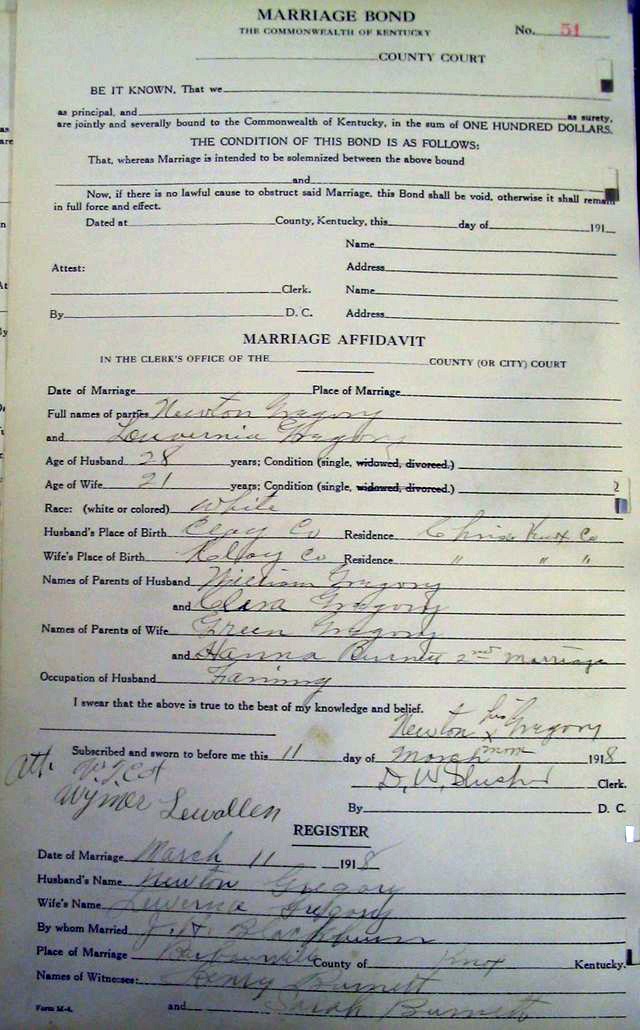 MARRIAGE BOND
THE COMMONWEALTH OF KENTUCKY
No. 51
COUNTY COURT
BE IT KNOWN, That we
as principal, and as surety,
are jointly and severally bound to the Commonwealth of Kentucky, in the sum of ONE HUNDRED DOLLARS.
THE CONDITION OF THIS BOND IS AS FOLLOWS:
That, whereas Marriage is intended to be solemnized between the above bound
and
Now, if there is no lawful cause to obstruct said Marriage, this Bond shall be void, otherwise it shall remain
in full force and effect.
Dated at County, Kentucky, this day of 191
Name
Attest: Address
Clerk. Name
By D. C. Address
MARRIAGE AFFIDAVIT
IN THE CLERK'S OFFICE OF THE COUNTY (OR CITY) COURT
Date of Marriage Place of Marriage
Full names of parties Newton Gregory
and Louvernia Gregory
Age of Husband 28 years; Condition (single, widowed, divorced.)
Age of Wife 21 years; Condition (single, widowed, divorced.)
Race: (white or colored) White
Husband's Place of Birth Clay Co Residence Knox Co
Wife's Place of Birth Clay Co Residence " " "
Names of Parents of Husband William Gregory
and Clara Gregory
Names of Parents of Wife Green Gregory
and Hanna Burnett 2nd Marriage
Occupation of Husband Farming
I swear that the above is true to the best of my knowledge and belief.
Newton his x mark Gregory
Subscribed and sworn to before me this 11 day of March 1918
Att.
D. W. Slusher Clerk.
Wymer Lewallen
By D. C.
REGISTER
Date of Marriage March 11 1918
Husband's Name Newton Gregory
Wife's Name Luverna Gregory
By whom Married J. H. Blackburn
Place of Marriage Barbourville County of Knox Kentucky.
Names of Witnesses: Henry Burnett
Form M-4. and Sarah Burnett